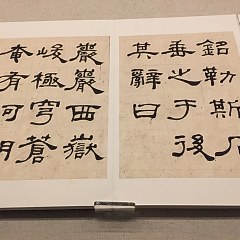 銘勒斯石
垂之于後
其辭曰
巖巖西嶽
峻極穹蒼
奄有河朔